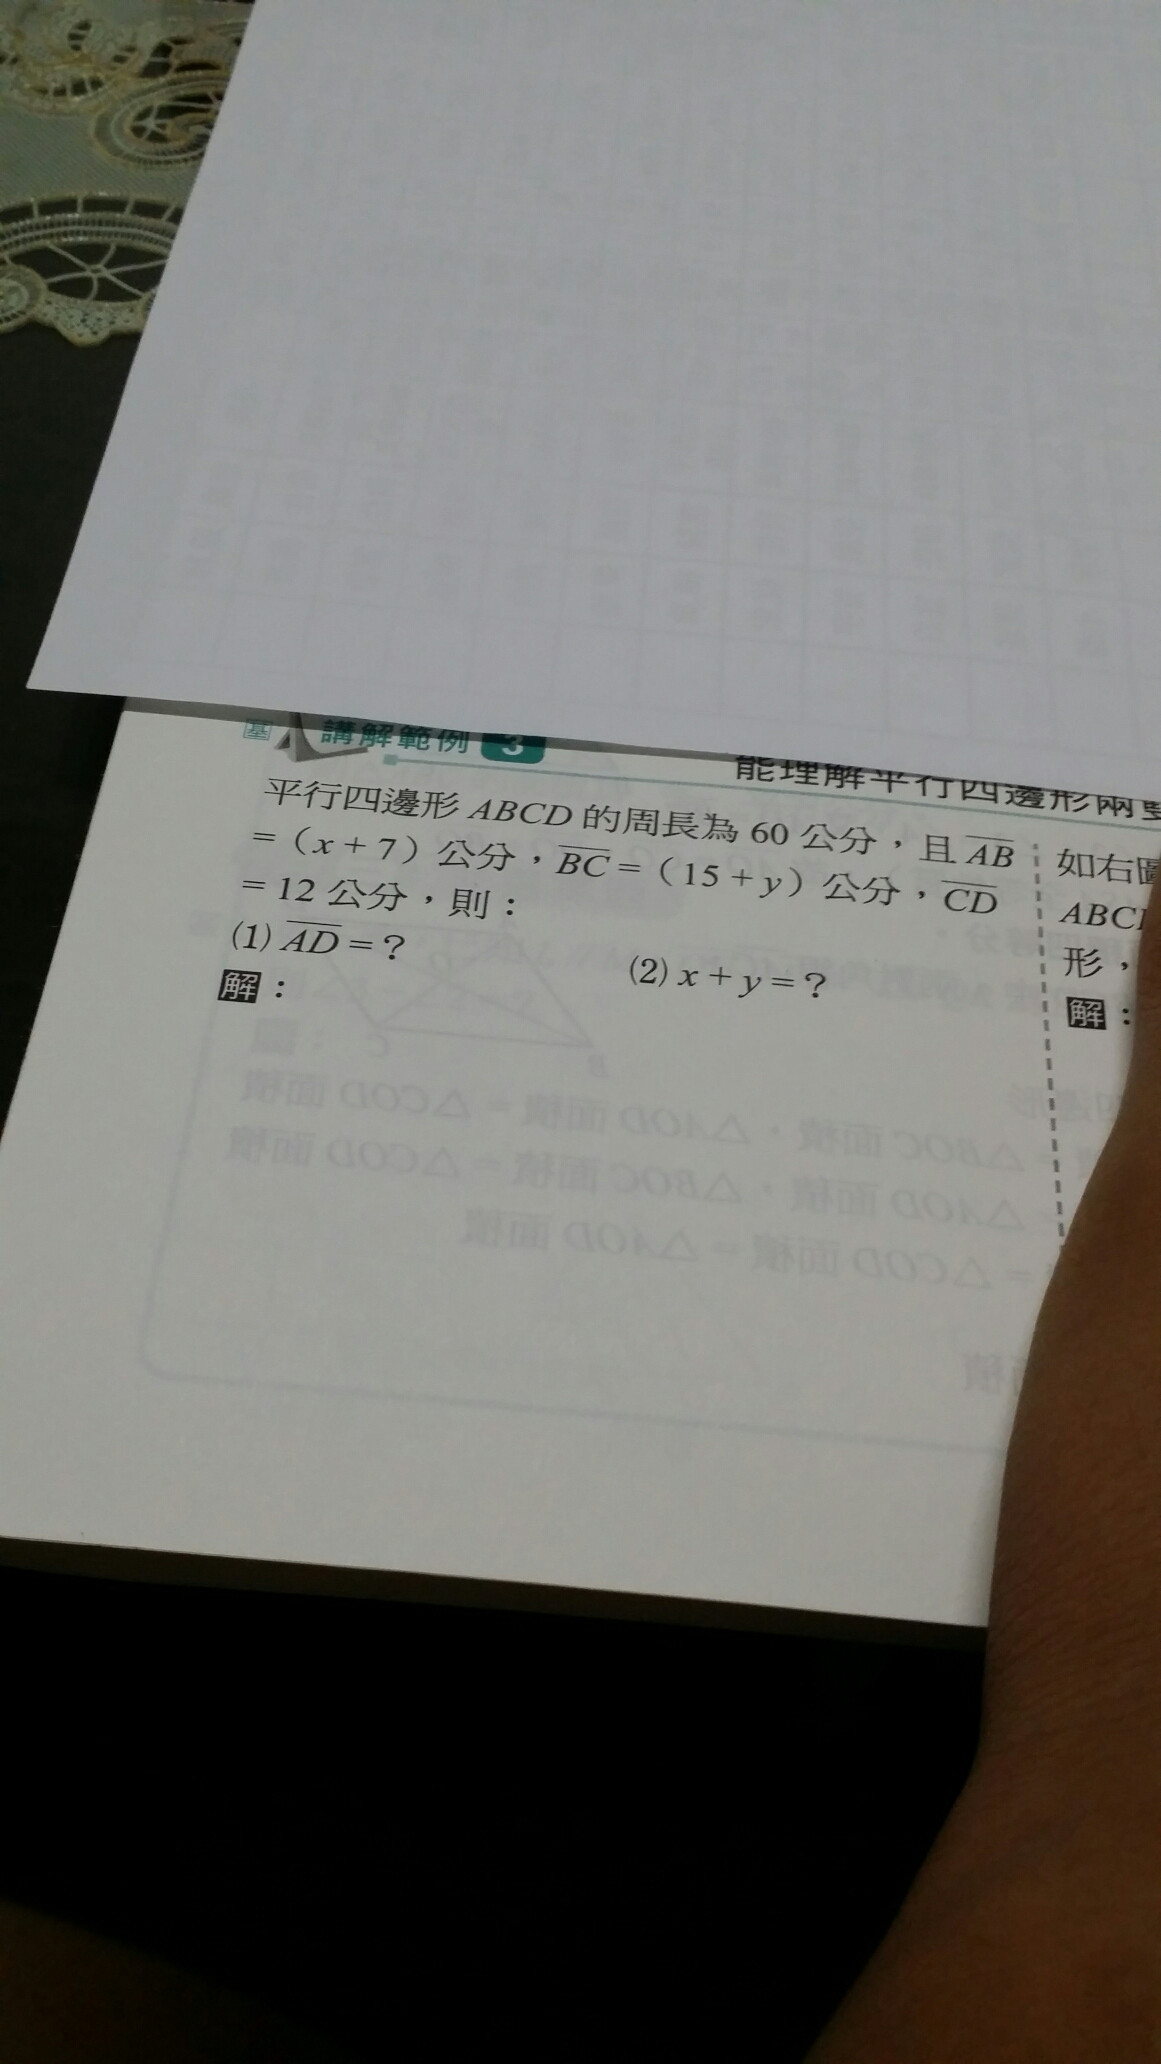 基 講解範例 3 能理解平行四邊形兩
平行四邊形 ABCD 的周長為 60 公分，且 AB
=（x + 7）公分，BC =（15 + y）公分，CD
= 12 公分，則：
(1) AD = ？ (2) x + y = ？
解：
如右圖
ABC
形，
解：